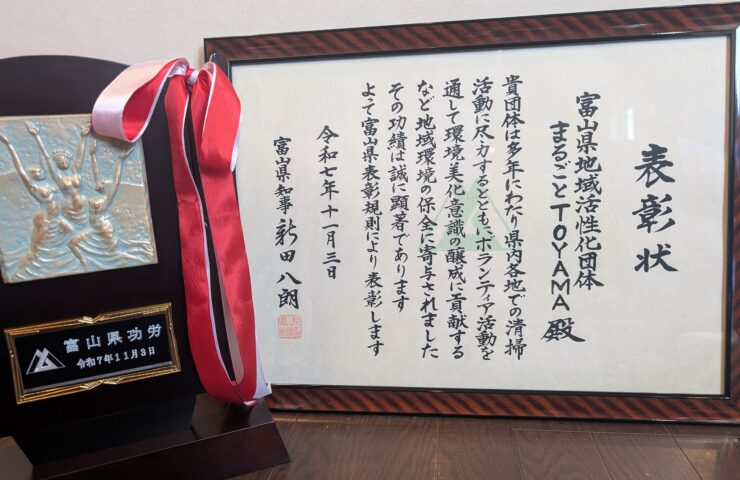 表彰状
富山県地域活性化団体
まるごとTOYAMA 殿
貴団体は多年にわたり県内各地での清掃
活動に尽力するとともにボランティア活動を
通して環境美化意識の醸成に貢献する
など地域環境の保全に寄与されました
その功績は誠に顕著であります
よって富山県表彰規則により表彰します
令和七年十一月三日
富山県知事 新田八朗
富山県功労
令和7年11月3日